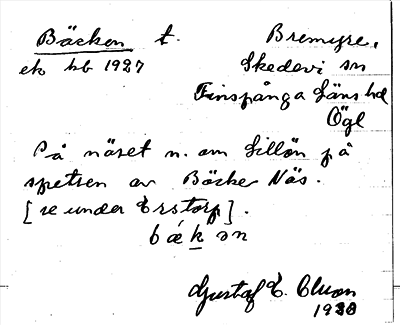 Bäcken t. Bremyre,
ek kb 1927 Skedevi sn
Finspånga läns hd
Ögl
På näset n. om Lillön på
spetsen av Böcker Näs.
[se under Erstorp].
bǽkən
Gustaf E. Cluson
1930